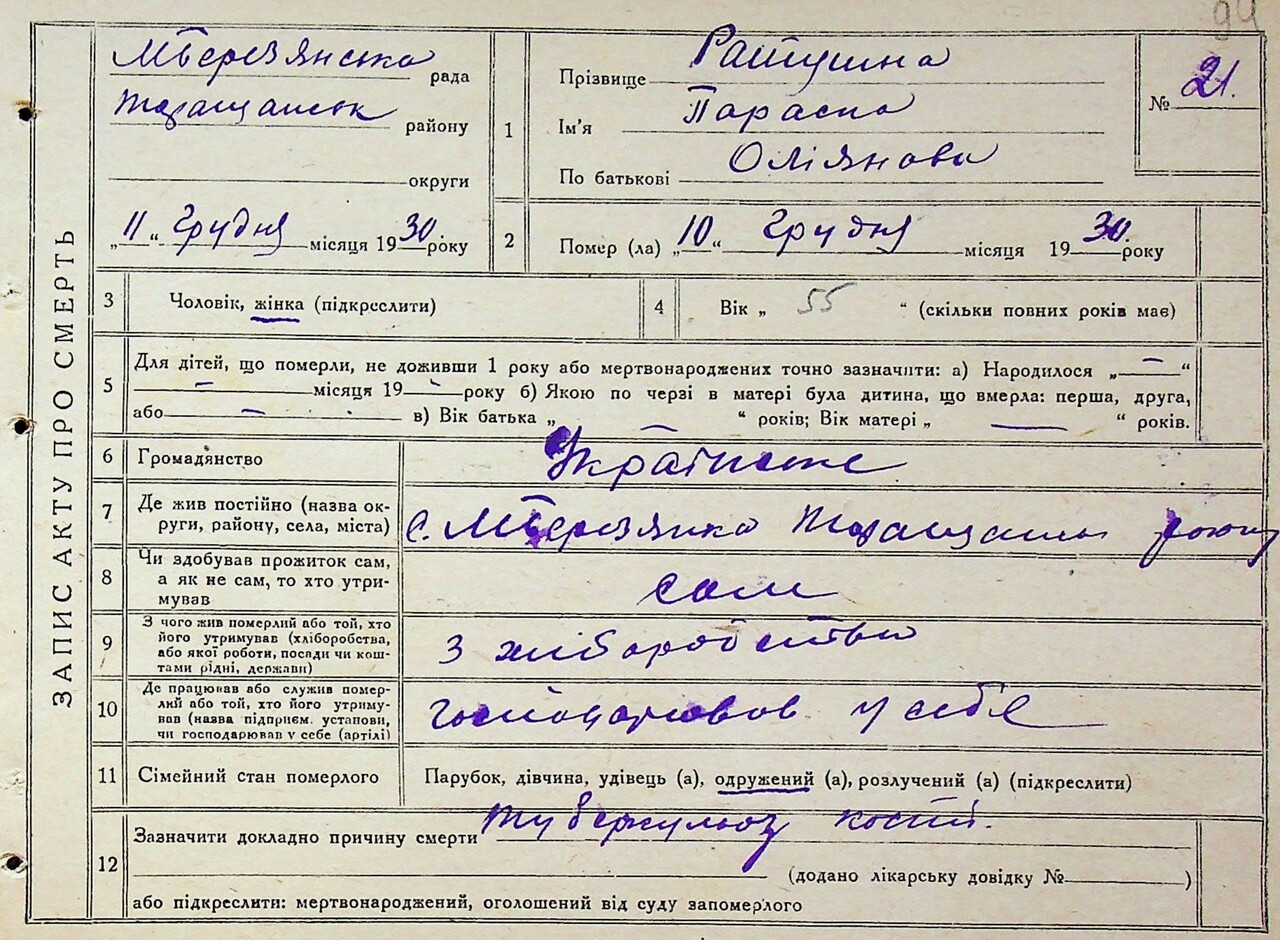 94
ЗАПИС АКТУ ПРО СМЕРТЬ
М Березянська рада
Таращанськ району
округи
„11“ Грудня місяця 1930 року
1
Прізвище Ратушна
Ім'я Параска
По батькові
№ 21.
2 Помер (ла) „10“ Грудня місяця 1930 року
3 Чоловік, жінка (підкреслити)
4 Вік „ 55 “ (скільки повних років має)
5 Для дітей, що померли, не доживши 1 року або мертвонароджених точно зазначити: а) Народилося „ — “
— місяця 19 - року б) Якою по черзі в матері була дитина, що вмерла: перша, друга,
або — в) Вік батька „ “ років; Вік матері „ — “ років.
6 Громадянство Українське
7 Де жив постійно (назва ок-
руги, району, села, міста) с. МБерезянка Таращанськ району
8 Чи здобував прожиток сам,
а як не сам, то хто утри-
мував сам
9 З чого жив померлий або той, хто
його утримував (хліборобства,
або якої роботи, посади чи кош-
тами рідні, держави) З хліборобства
10 Де працював або служив помер-
лий або той, хто його утриму-
вав (назва підприєм. установи,
чи господарював у себе (артілі) господарював у себе
11 Сімейний стан померлого Парубок, дівчина, удівець (а), одружений (а), розлучений (а) (підкреслити)
12 Зазначити докладно причину смерти туберкульоз костій.
(додано лікарську довідку № )
або підкреслити: мертвонароджений, оголошений від суду запомерлого